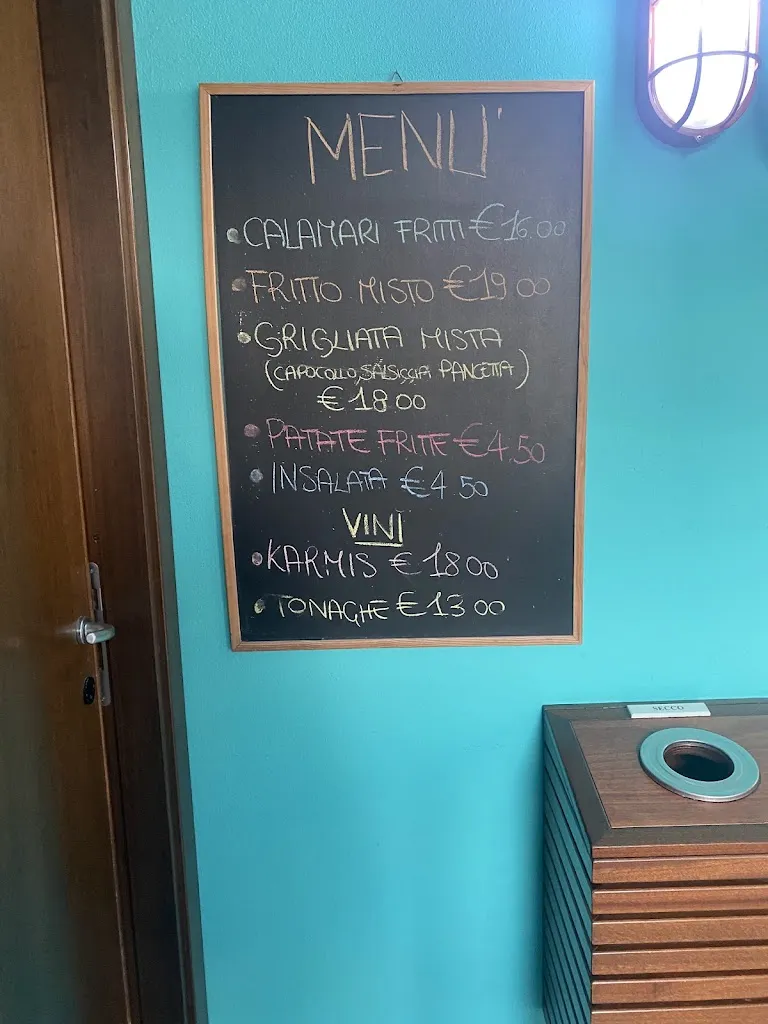 MENU'
• CALAMARI FRITTI € 16.00
• FRITTO MISTO € 19 00
• GRIGLIATA MISTA
(CAPOCOLLO, SALSICCIA PANCETTA)
€ 18 00
• PATATE FRITTE € 4.50
• INSALATA € 4 50
VINI
• KARMIS € 18 00
• TONAGHE € 13 00
SECCO